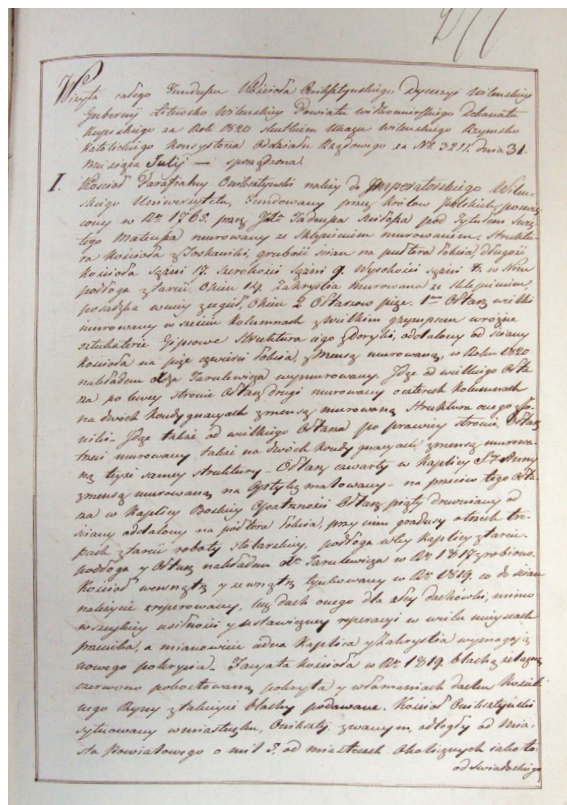 Wizyta całego Funduszu Kościoła Oniksztynskiego Dyecezyi Wilenskiey
Gubernij Litewsko Wilenskiey Powiatu Wiłkomirskiego Dekanatu
za Rok 1820 skutkiem Ukazu Wilenskiego Rzymsko
Katolickiego Konsystorza Oddziału Rządowego za N° 3211. Dnia 31.
Miesiąca Julij — sporządzona.
I. Kościoł Parafialny Onikstynski należy do Imperatorskiego Wilen-
skiego Uniwersytetu, Fundowany przez Krolow Polskich, poswię-
cony w R. 1765. przez pod tytułem Swię-
tego Mateusza murowany ze sklepieniem murowaniem, Struktu-
ra Kościoła z Toskanski, grubość scian na pułtora łokcia, długość
Kościoła Sążni 17. Szerokości Sążni 9. Wysokości Sążni 7. w nim
podłoga z tarcic. Okien 14. Zakrystia murowana ze sklepieniem,
posadzka w niey z cegieł Okien 2 Ołtarzow pięć. 1szy Ołtarz wielki
murowany w sześciu kolumnach z wielkim gzymsem w rożne
sztukaterie Gipsowe Struktura iego z Doryki, oddalony od sciany
Kościoła na pięć czwierci łokcia, z Mensą murowaną, w Roku 1820
nakładem Xa Jarulewicza wymurowany. Idąc od wielkiego Ołta-
rza po lewey stronie Ołtarz drugi murowany o czterech kolumnach
na dwoch Kondygnacyach z mensą murowaną Struktura onego Jo-
niki. Idąc także od wielkiego Ołtarza po prawey stronie, Ołtarz
trzeci murowany także na dwoch Kondygnacyach z mensą murowa-
ną teyże samey struktury — Ołtarz czwarty w Kaplicy S. Anny
z mensą murowaną na malowany — na przeciw tego Ołta-
rza w Kaplicy Boskiey Opatrznosci Ołtarz piąty drewniany od
sciany oddalony na pułtora łokcia, przy nim gradusy o trzech sto-
pniach z tarcic roboty stolarskiey, podłoga w tey Kaplicy z tarcic.
podłoga y Ołtarz nakładem Xa Jarulewicza w R. 1817 zrobiono.
Kościoł wewnątrz y zewnątrz tynkowany w R. 1819. co do scian
należycie zreperowany, lecz dach onego dla złey dachowki, mimo
wszystkiey usilnosci y ustawiczney reperacyi w wielu mieyscach
przecieka, a mianowicie obie Kaplice y Zakrystia wymagaią
nowego pokrycia. Facyata kościoła w R. 1819. blachą żelazną
czerwono pokostowaną pokryta y w łamaniach dachu Kościel-
nego Rynny z takieyże blachy podawane. Kościoł Onikstynski
sytuowany w miasteczku, Onikszty zwanym, odległy od Mia-
sta Powiatowego o mil 5. od miasteczek Okolicznych iako to.
od Swiadoskiego